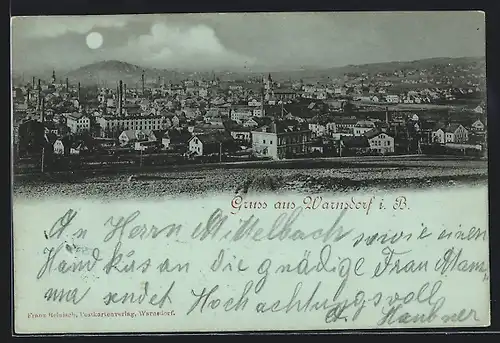 Gruss aus Warnsdorf i. B.
An Herrn Mittelbach sowie einen
Handkuss an die gnädige Frau Mam-
ma sendet Hochachtungsvoll
Franz Reinisch, Postkartenverlag, Warnsdorf.
A. Haubner